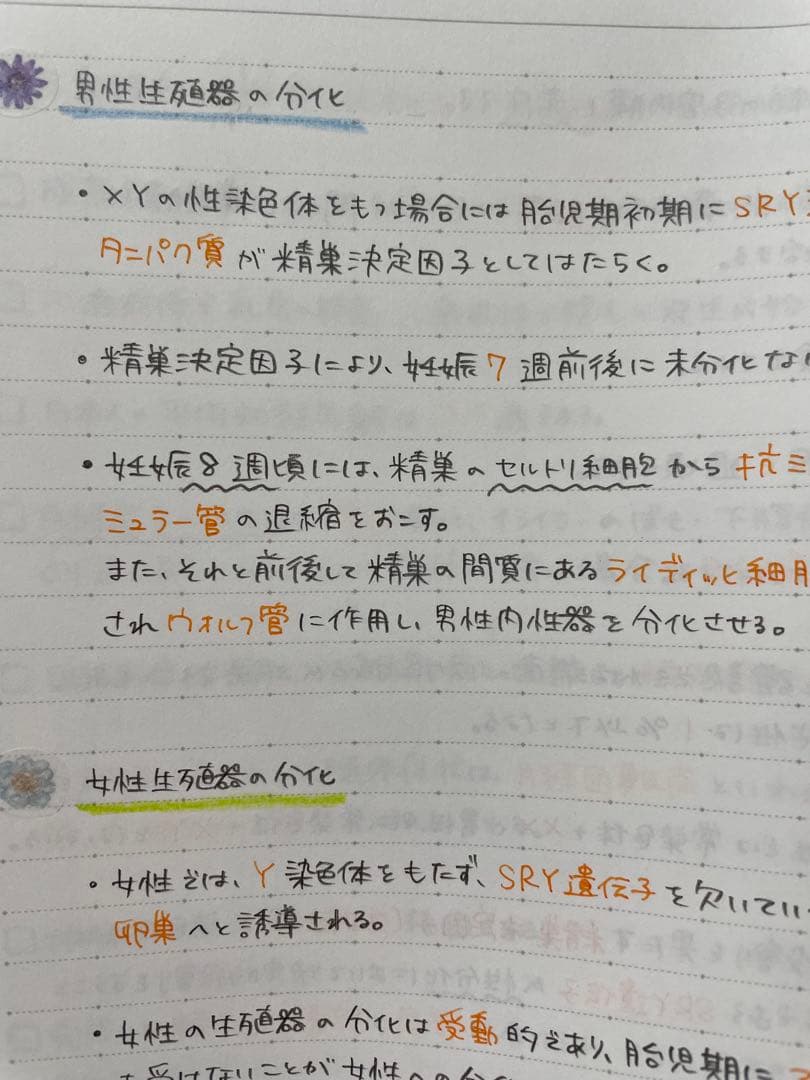 男性生殖器の分化
・XYの性染色体をもつ場合には胎児期初期にSRY
タニパク質が精巣決定因子としてはたらく。
・精巣決定因子により、妊娠7週前後に未分化な
・妊娠8週頃には、精巣のセルトリ細胞から抗ミ
ミュラー管の退縮をおこす。
また、それと前後して精巣の間質にあるライディッヒ細
されウォルフ管に作用し、男性内性器を分化させる。
女性生殖器の分化
・女性では、Y染色体をもたず、SRY遺伝子を欠いてい
卵巣へと誘導される。
・女性の生殖器の分化は受動的であり、胎児期に
を受けないことが女性への分